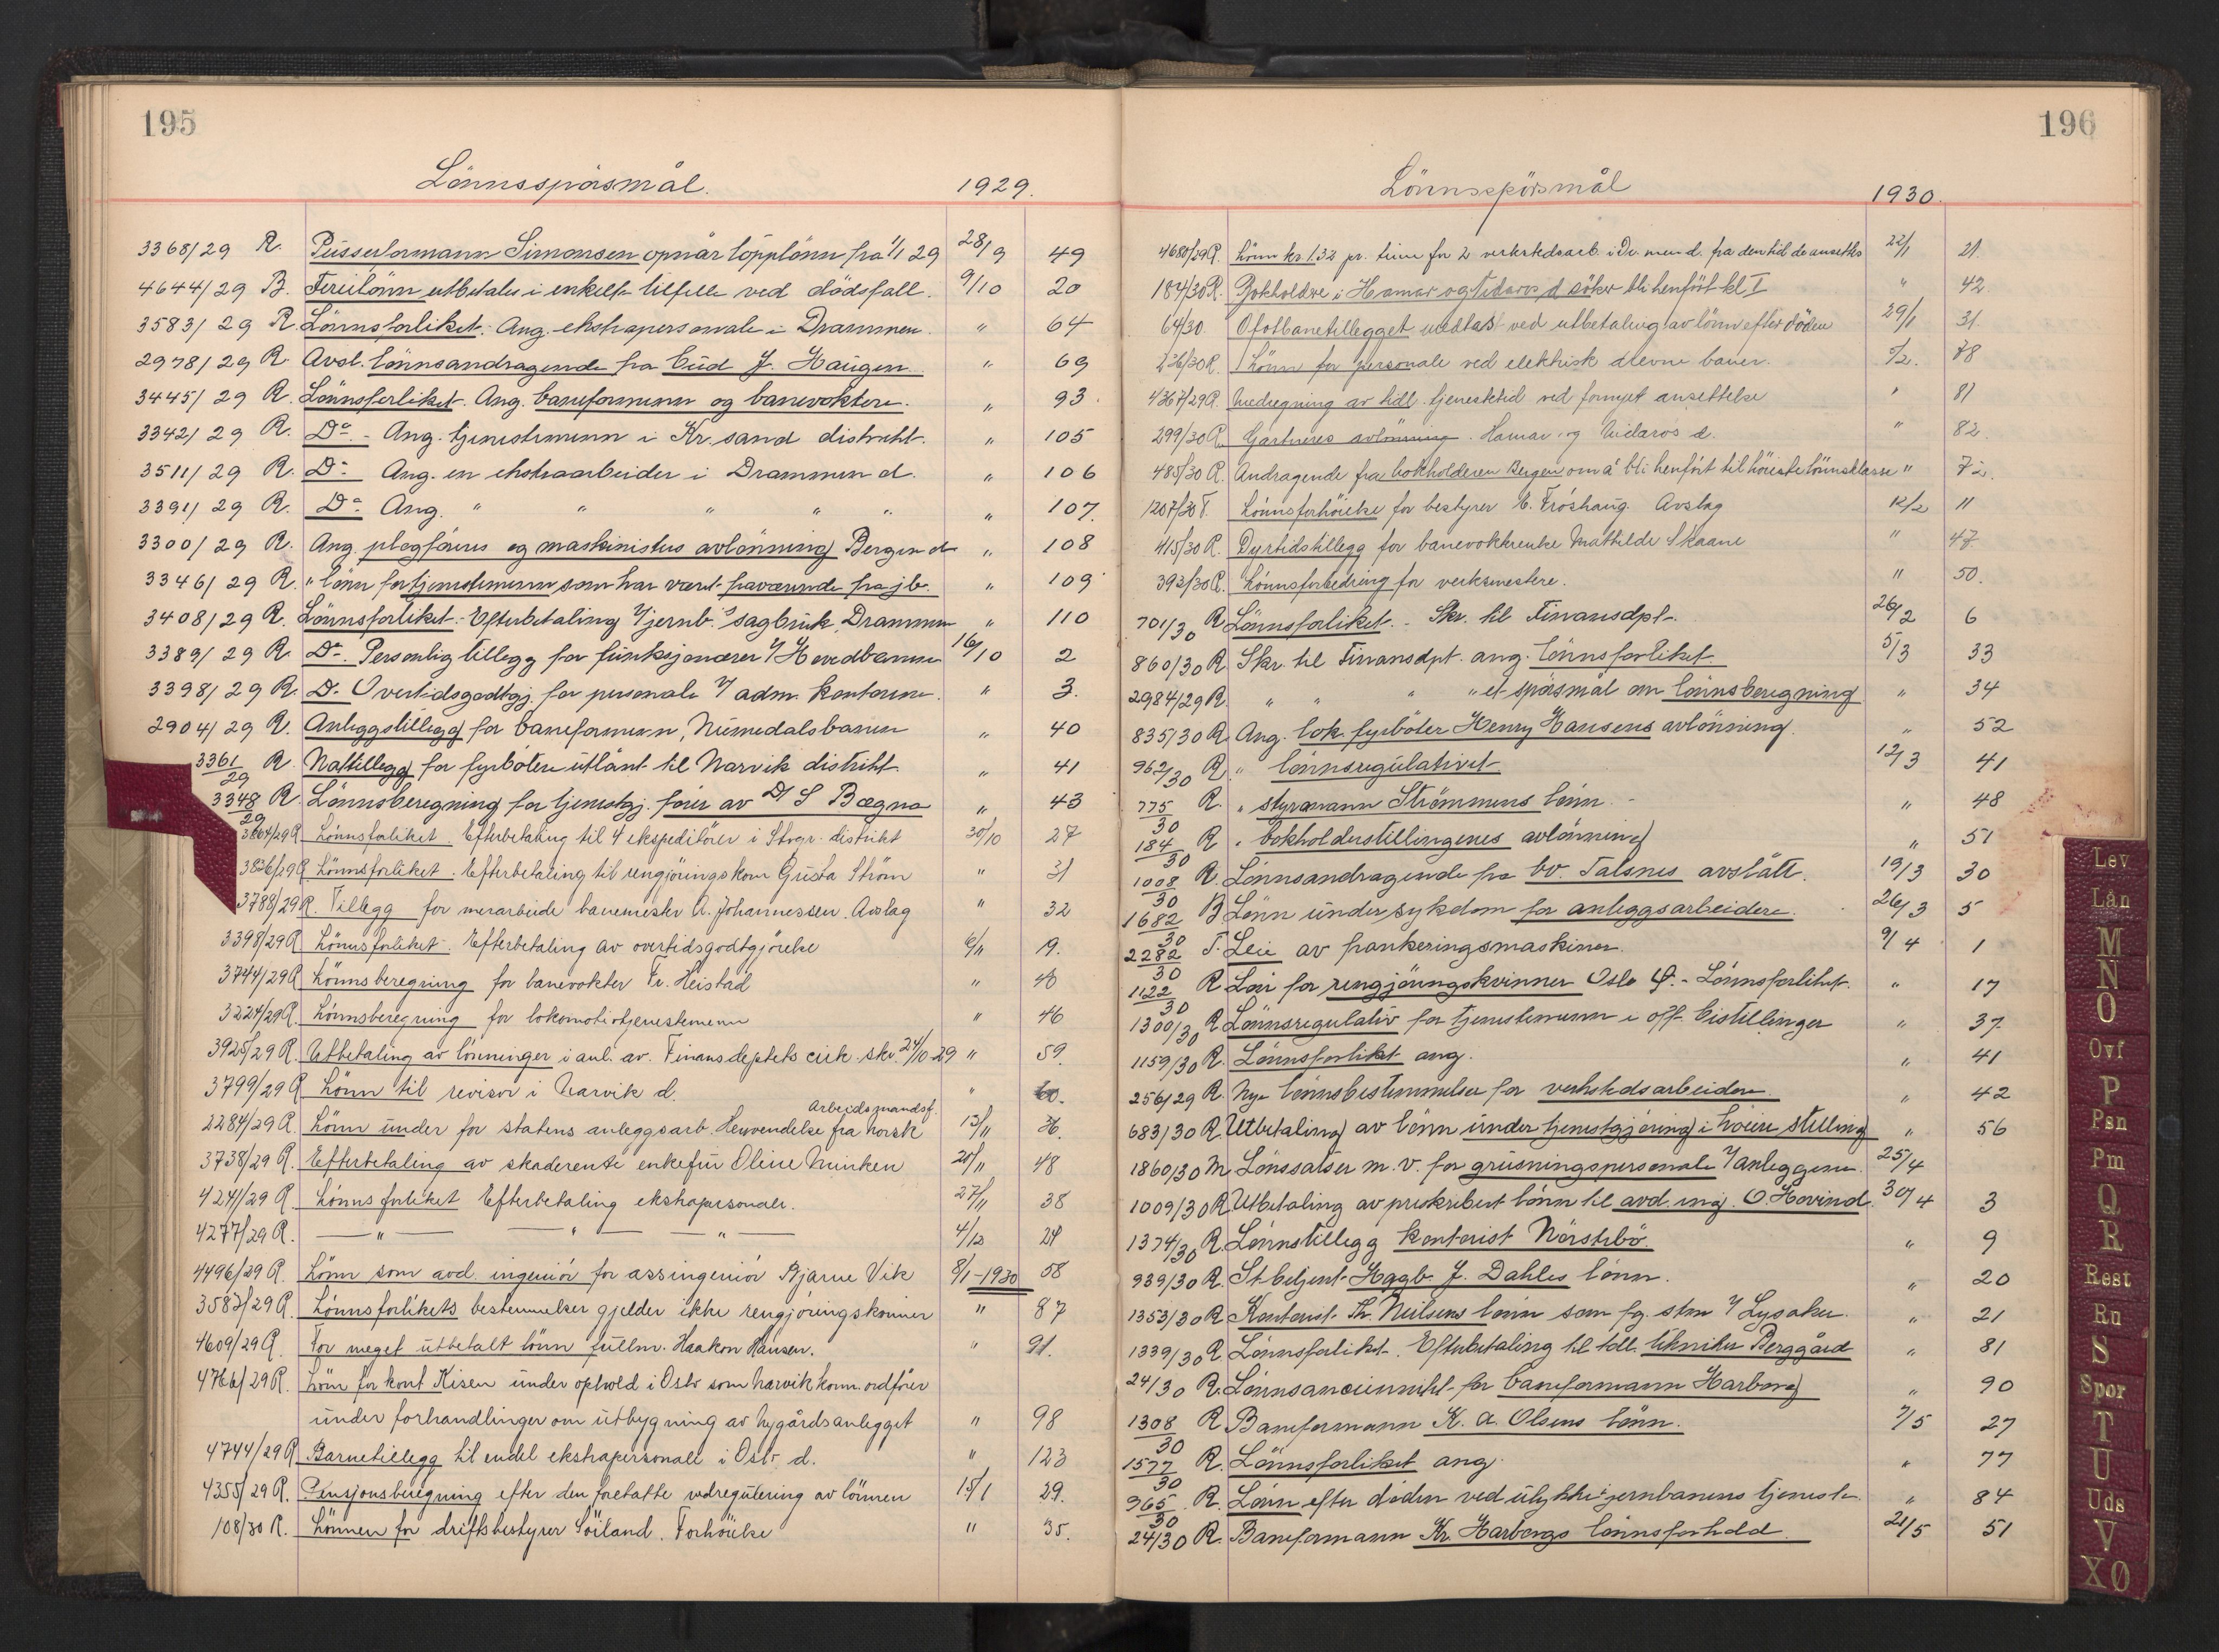 195
Lönnsspörsmål. 1929.
3368/29 R. Pusserformann Simonsen opnår topplönn fra 1/1 29 28/9 49
4644/29 B. Ferielönn utbetales i enkelte tilfelle ved dödsfall. 9/10 20
3583/29 R. Lönnsforliket. Ang. ekstrapersonale i Drammen. " 64
2978/29 R. Avsl. lönnsandragende fra bud J. Haugen. " 69
3445/29 R. Lönnsforliket. Ang. baneformenn og banevoktere. " 93
3342/29 R. Do - Ang. tjenestemenn i Kr.sand distrikt. " 105
3511/29 R. Do Ang. en ekstraarbeider i Drammen d. " 106
3391/29 R. Do Ang. " " " " " " 107.
3300/29 R. Ang. plogförers og maskinisters avlönning Bergen d. " 108
3346/29 R. " lönn for tjenestemenn som har vært fraværende fra jb. " 109
3408/29 R. Lönnsforliket. Efterbetaling v/ jernb.s sagbruk, Drammen " 110
3389/29 R. Do. Personlig tillegg for funksjonærer v/ Hovedbanen 16/10 2
3398/29 R. Do. Overtidsgodtgj. for personale v/ adm. kontorene. " 3.
2904/29 R. Anleggstillegg for baneformenn, Numedalsbanen " 40
3361/29 R. Nattillegg for fyrbötere utlånt til Narvik distrikt. " 41
3348/29 R. Lönnsberegning for tjenestgj. förer av D/S Bægna " 43
3664/29 R. Lönnsforliket. Efterbetaling til 4 ekspeditörer i Stvgr. distrikt 30/10 27
3826/29 R. Lönnsforliket. Efterbetaling til rengjöringskone Gusta Ström " 31
3788/29 R. Tillegg for merarbeide banemester A. Johannessen. Avslag " 32
3398/29 R. Lönnsforliket. Efterbetaling av overtidsgodtgjörelse 6/11 19.
3744/29 R. Lönnsberegning for banevokter Fr. Heistad "
3224/29 R. Lönnsberegning for lokomotivtjenestemenn " 46
3925/29 R. Utbetaling av lönninger i anl. av. Finansdeptets cirk. skr. 24/10-29 " 59.
3799/29 R. Lönn til revisor i Narvik d. " 60.
2284/29 R. Lönn under for statens anleggsarb. Henvendelse fra Norsk Arbeidsmandsf. 13/11 36.
3738/29 R. Efterbetaling av skaderente enkefru Oline Minken 20/11 48
4241/29 R. Lönnsforliket Efterbetaling ekstrapersonale. 27/11 38
4277/29 R. — " — — " — — " — 4/12 24
4496/29 R. Lönn som avd. ingeniör for assingeniör Bjarne Vik 8/1-1930 58
3583/29 R. Lönnsforlikets bestemmelser gjelder ikke rengjöringskoner " 87
4609/29 R. For meget utbetalt lönn fullm. Haakon Hansen. " 91.
4766/29 R. Lönn for kont Kisen under ophold i Oslo som Narvik komm. ordförer
under forhandlinger om utbygning av Nygårdsanlegget " 98
4744/29 R. Barnetillegg til endel ekstrapersonale i Oslo d. " 123
4355/29 R. Pensjonsberegning efter den foretatte nedregulering av lönnen 15/1 29.
108/30 R. Lönnen for driftsbestyrer Söiland. Forhöielse " 35.
196
Lönnsspörsmål 1930.
4680/29 R. Lönn kr 1.32 pr. time for 2 verkstedsarb. i Dr.men d. fra den tid de ansettes 22/1 21.
184/30 R. Bokholdere i Hamar og Nidaros d söker bli henfört kl I " 42
64/30. Ofotbanetillegget medtas ved utbetaling av lönn efter döden 29/1 31.
236/30 R. Lönn for personale ved elektrisk drevne baner. 5/2. 78
4367/29 R. Medregning av tidl. tjenestetid ved fornyet ansettelse " 81
299/30 R. Gartneres avlönning. Hamar og Nidaros d. " 82.
485/30 R. Andragende fra bokholderen Bergen om å bli henfört til höieste lönnsklasse " 72.
1207/30 T. Lönnsforhöielse for bestyrer E. Fröshaug. Avslag 12/2 11
415/30 R. Dyrtidstillegg for banevokterenke Mathilde Skaane " 47
392/30 R. Lönnsforbedring for verksmestere. " 50.
701/30 R Lönnsforliket. - Skr. til Finansdpt. 26/2 6
860/30 R. Skr. til Finansdpt. ang. lönnsforliket. 5/3 33
2984/29 R. " " " " et spörsmål om lönnsberegning " 34
835/30 R. Ang. lok. fyrböter Henry Hansens avlönning. " 52
962/30 R. " lönnsregulativet 12/3 41
775/30 R. " styrmann Strömmens lönn. - " 48
184/30 R " bokholderstillingenes avlönning " 51
1008/30 R. Lönnsandragende fra bv. Talsnes avslått. 19/3 30
1682/30 B Lönn under sykdom for anleggsarbeidere. 26/3 5
2282/30 T. Leie av frankeringsmaskiner. 9/4 1
1122/30 R Lön for rengjöringskvinner Oslo Ö. - Lönnsforliket. " 17
1300/30 R. Lönnsregulativ for tjenestemenn i off. bistillinger " 37
1159/30 R. Lönnsforliket ang. " 41
256/29 R. Nye lönnsbestemmelser for verkstedsarbeidere. " 42
683/30 R. Utbetaling av lönn under tjenestgjöring i höiere stilling " 56
1860/30 M Lönssatser m.v. for grusningspersonale v/ anleggene. 25/4
1009/30 R. Utbetaling av preskribert lönn til avd. ing. O. Hovind. 30/4 3
1374/30 R. Lönnstillegg kontorist Nörstebö. " 9
939/30 R. St.betjent Hagb. J. Dahles lönn. " 20
1353/30 R Kontorist Th. Neilsens lönn som fg. stm v/ Lysaker. " 21
1339/30 R. Lönnsforliket. Efterbetaling til tdl. tekniker Berggård " 81
24/30 R. Lönnsanciennitet for baneformann Harborg " 90
1308/30 R Baneformann K. A. Olsens lönn. 7/5 27
1577/30 R. Lönnsforliket ang. " 77
965/30 R. Lönn efter döden ved ulykke i jernbanens tjeneste " 84
24/30 R. Baneformann Kr. Harborgs lönnsforhold. 21/5 51
Lev
Lån
M
N
O
Ovf
P
Psn
Pm
Q
R
Rest
Ru
S
Spor
T
U
Uds
V
XØ